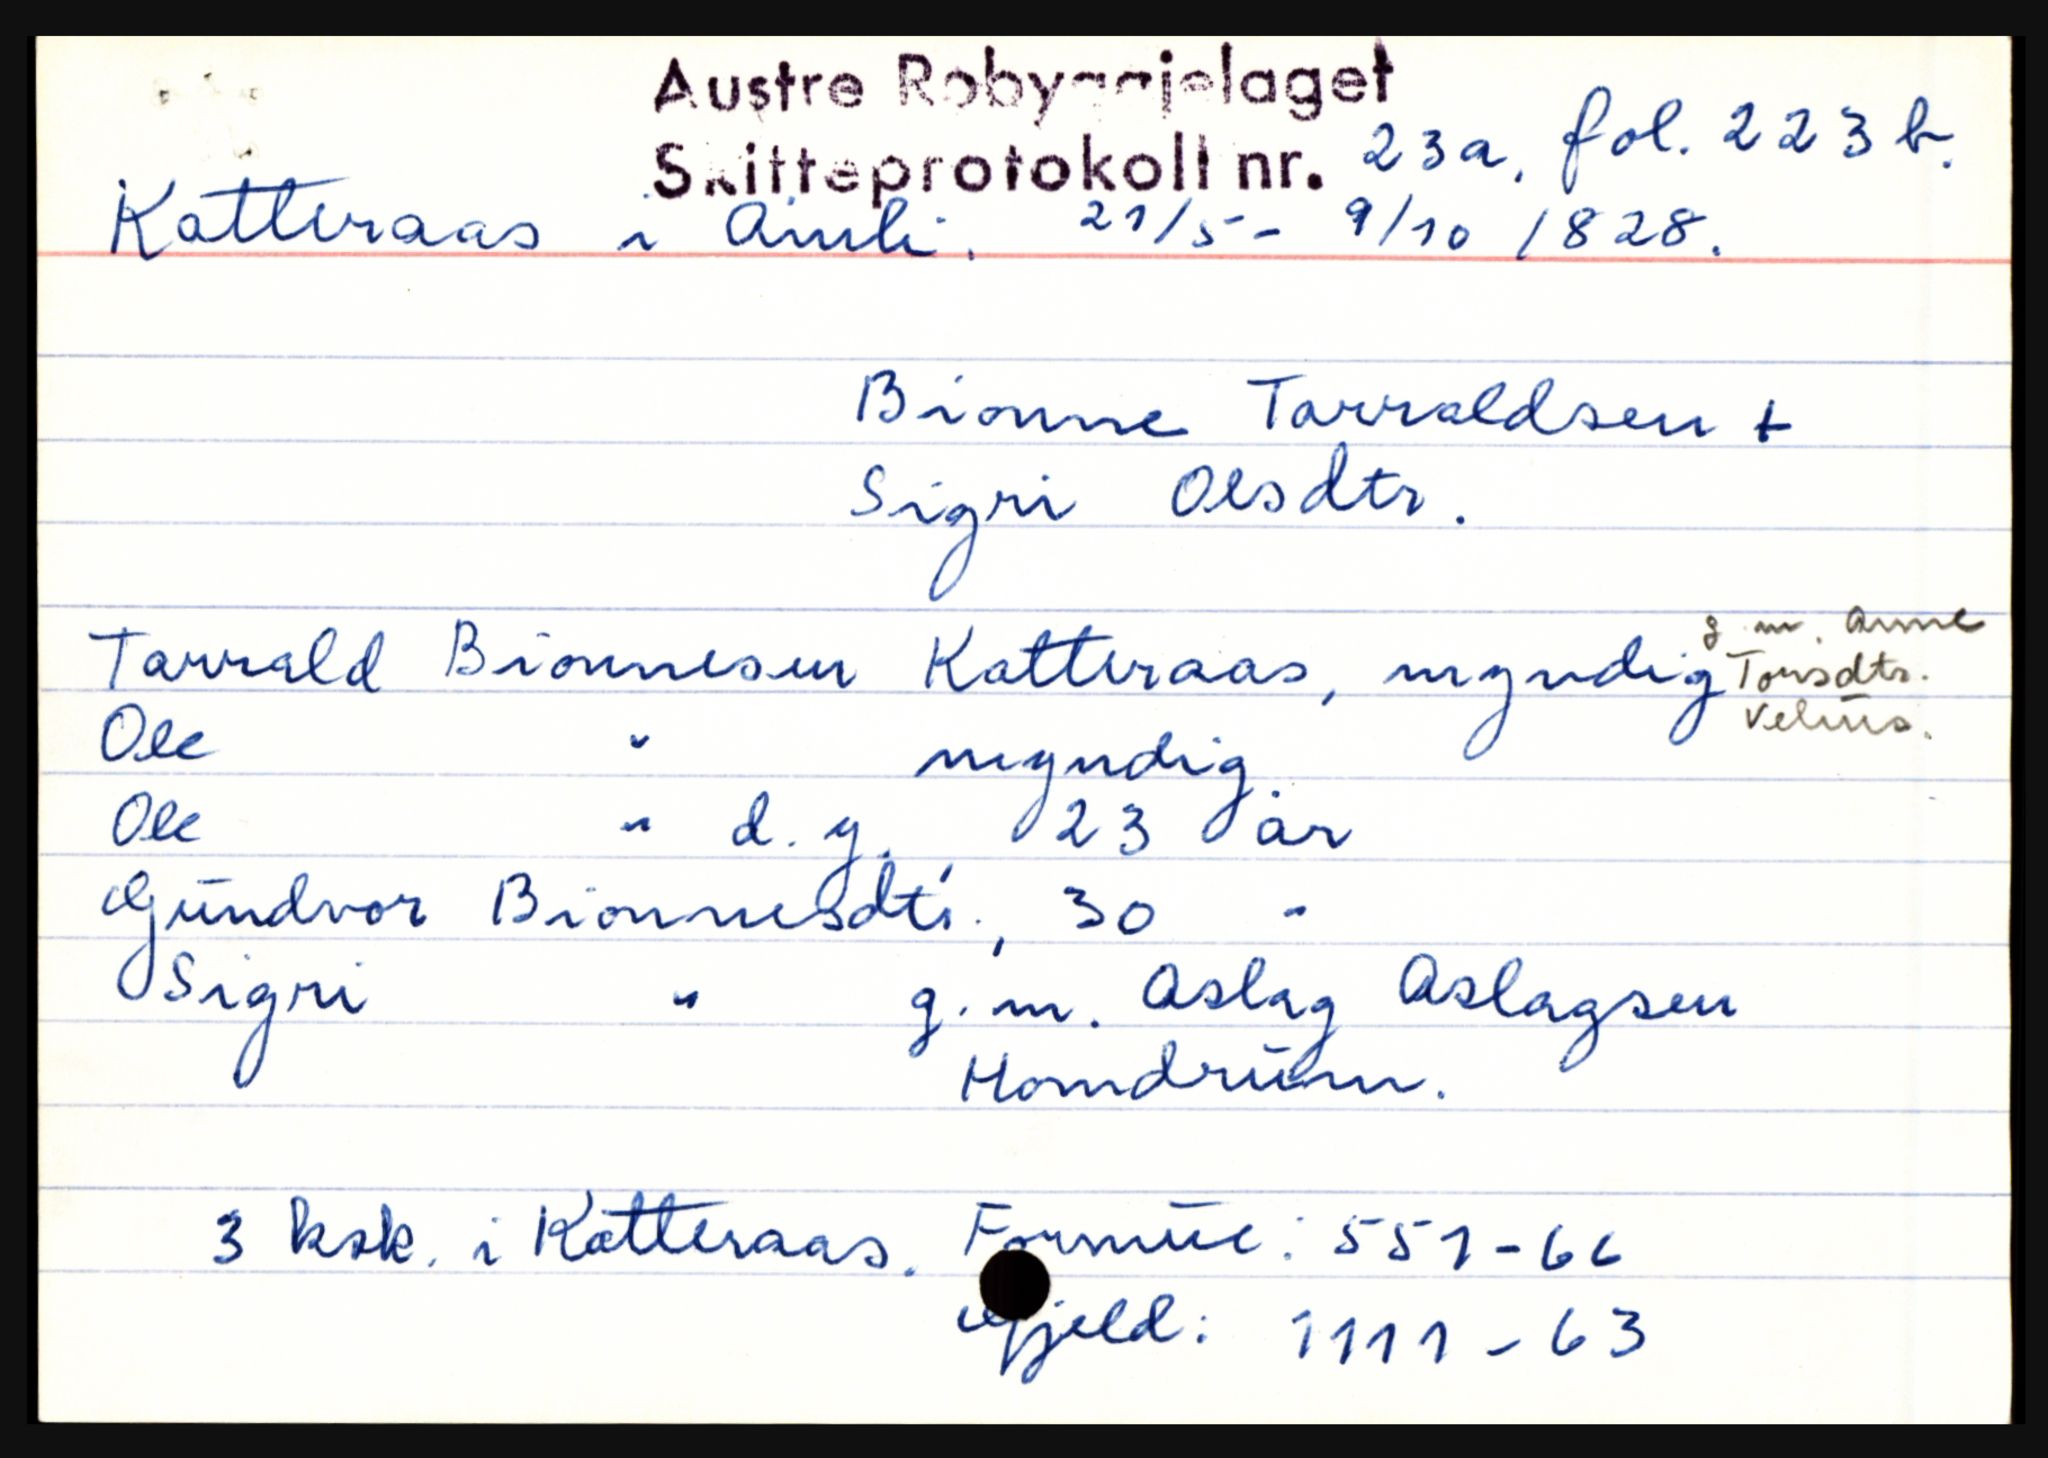 Austre Robyggjelaget
Skifteprotokoll nr. 23a, fol. 223 b.
Katteraas i Åmli. 21/5 - 9/10 1828.
Bionne Tarraldsen +
Sigri Olsdtr.
Tarrald Bionnesen Katteraas, myndig g.m. Anne
Torsdtr.
Ole " myndig
Ole " d.y. 23 år
Gundvor Bionnesdtr., 30 "
Sigri " g.m. Aslag Aslagsen
Homdrum.
3 ksk. i Katteraas. Formue: 551-66
Gjeld: 1111-63